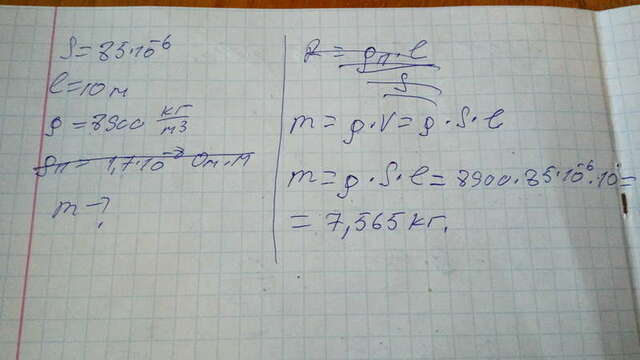 S=85·10⁻⁶
l=10м
ρ=8900 кг/м³
ρп=1,7·10⁻⁸ Ом·м
m-?
R = ρп·l/S
m=ρ·V=ρ·S·l
m=ρ·S·l=8900·85·10⁻⁶·10=
= 7,565кг.